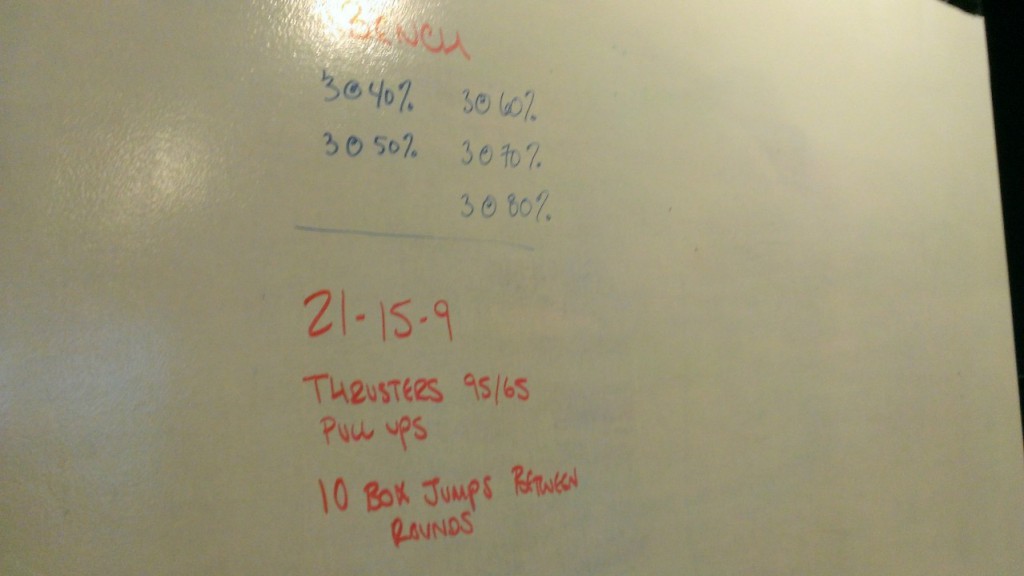 BENCH
3@40% 3@60%
3@50% 3@70%
3@80%
21-15-9
THRUSTERS 95/65
PULL UPS
10 BOX JUMPS BETWEEN
ROUNDS